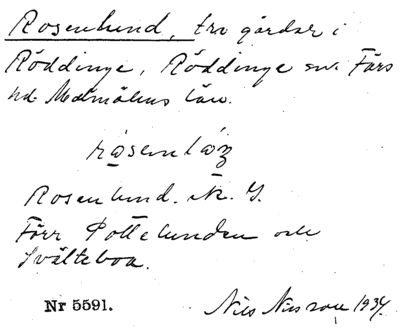 Rosenlund, två gårdar i
Röddinge, Röddinge sn. Färs
hd Malmöhus län.
Rosenlund. Ek. J.
Förr Pottelunden och
Svälteboa.
Nr 5591.
Nils Nilsson 1934.